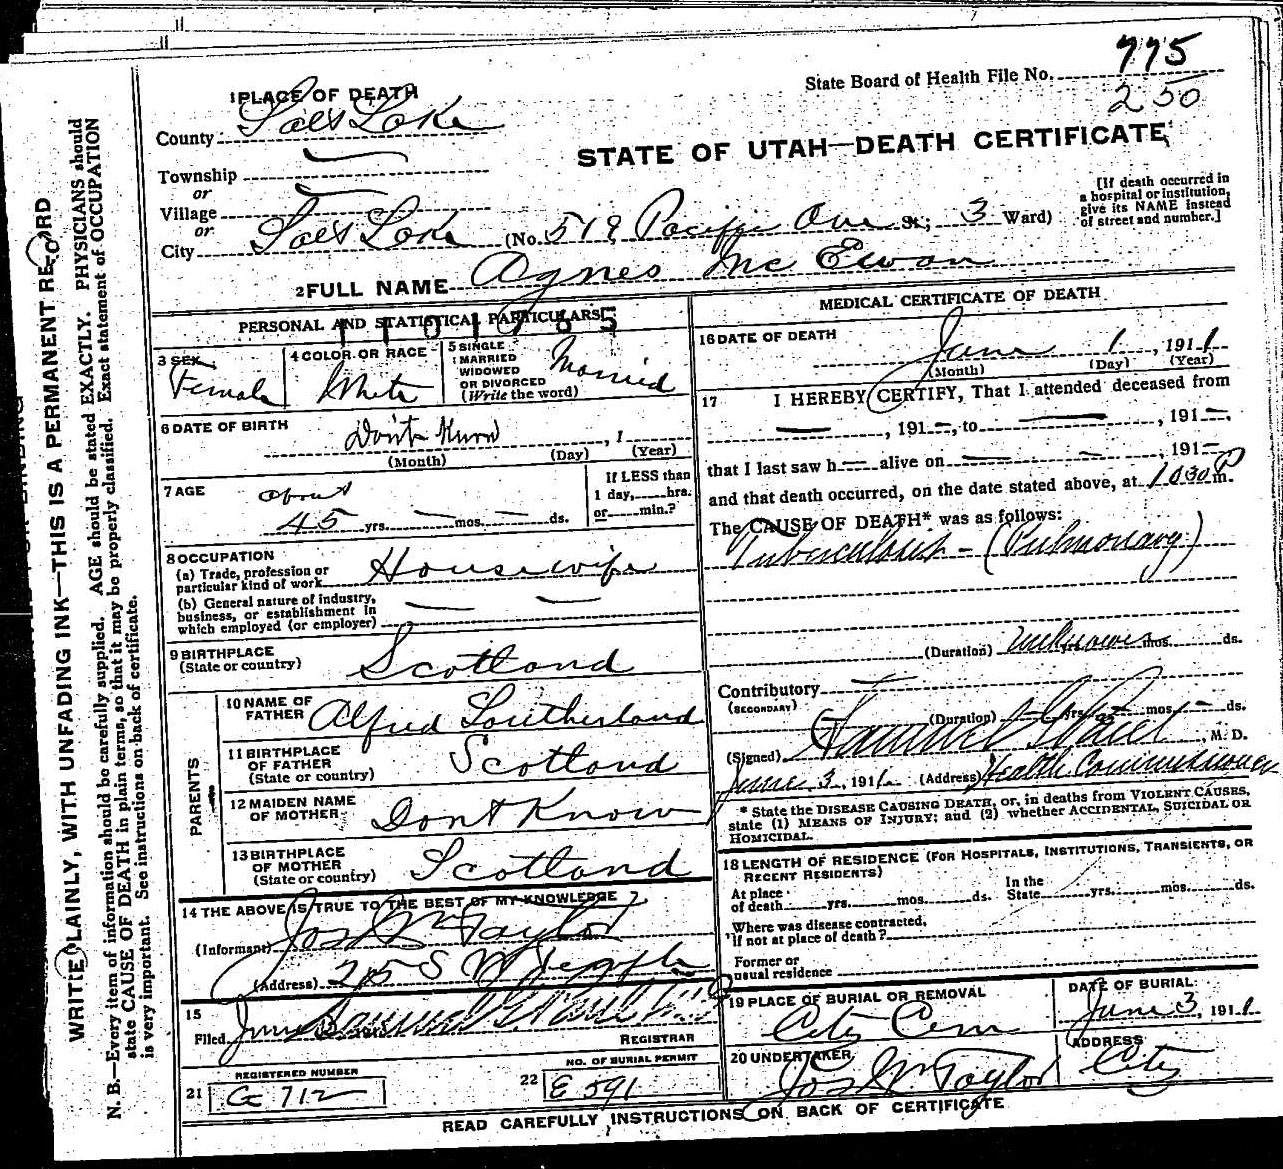 775
State Board of Health File No.
250
1 PLACE OF DEATH
County Salt Lake
STATE OF UTAH—DEATH CERTIFICATE
Township
or
Village
or
City Salt Lake (No. 519 Pacific Ave St; 3 Ward)
[If death occurred in
a hospital or institution,
give its NAME instead
of street and number.]
2 FULL NAME Agnes Mc Ewan
PERSONAL AND STATISTICAL PARTICULARS
1101765
3 SEX
Female
4 COLOR OR RACE
White
5 SINGLE
MARRIED
WIDOWED
OR DIVORCED
(Write the word)
Married
6 DATE OF BIRTH
Don't Know , 1
(Month) (Day) (Year)
7 AGE
about
45 yrs. — mos. — ds.
If LESS than
1 day, hrs.
or min.?
8 OCCUPATION
(a) Trade, profession or
particular kind of work Housewife
(b) General nature of industry,
business, or establishment in
which employed (or employer)
9 BIRTHPLACE
(State or country) Scotland
PARENTS
10 NAME OF
FATHER Alfred Southerland
11 BIRTHPLACE
OF FATHER
(State or country) Scotland
12 MAIDEN NAME
OF MOTHER Dont Know
13 BIRTHPLACE
OF MOTHER
(State or country) Scotland
14 THE ABOVE IS TRUE TO THE BEST OF MY KNOWLEDGE
(Informant) Jos Wm Taylor
(Address) 2 S W Temple
15
Filed June Samuel G. Paul M D
REGISTRAR
REGISTERED NUMBER
21 G 712
NO. OF BURIAL PERMIT
22 E 591
MEDICAL CERTIFICATE OF DEATH
16 DATE OF DEATH
June 1 , 1911
(Month) (Day) (Year)
17 I HEREBY CERTIFY, That I attended deceased from
— , 191 —, to — , 191 —,
that I last saw h — alive on — — , 191 —
and that death occurred, on the date stated above, at 10 30 P m.
The CAUSE OF DEATH* was as follows:
Tuberculosis - (Pulmonary)
(Duration) unknown mos. ds.
Contributory
(SECONDARY)
(Duration) yrs. mos. ds.
(Signed) Samuel G Paul , M. D.
June 3, 1911 (Address) Health Commissioner
* State the DISEASE CAUSING DEATH, or, in deaths from VIOLENT CAUSES,
state (1) MEANS OF INJURY; and (2) whether ACCIDENTAL, SUICIDAL OR
HOMICIDAL.
18 LENGTH OF RESIDENCE (FOR HOSPITALS, INSTITUTIONS, TRANSIENTS, OR
RECENT RESIDENTS)
At place
of death yrs. mos. ds.
In the
State yrs. mos. ds.
Where was disease contracted,
if not at place of death?
Former or
usual residence
19 PLACE OF BURIAL OR REMOVAL
City Cem
DATE OF BURIAL
June 3, 1911
20 UNDERTAKER
Jos Wm Taylor
ADDRESS
City
READ CAREFULLY INSTRUCTIONS ON BACK OF CERTIFICATE
WRITE PLAINLY, WITH UNFADING INK—THIS IS A PERMANENT RECORD
N. B.—Every item of information should be carefully supplied. AGE should be stated EXACTLY. PHYSICIANS should
state CAUSE OF DEATH in plain terms, so that it may be properly classified. Exact statement of OCCUPATION
is very important. See instructions on back of certificate.